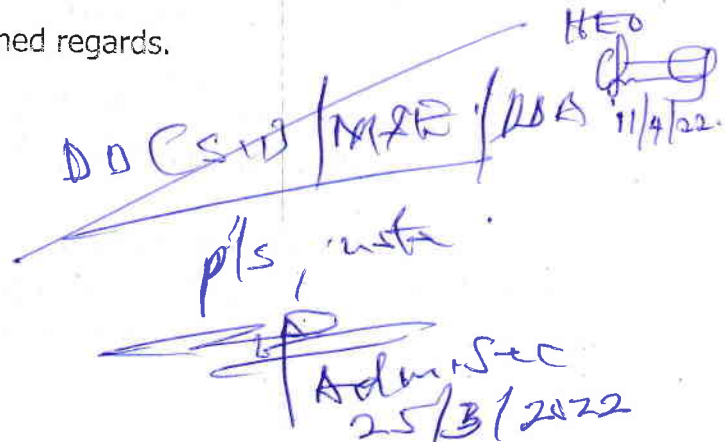 ned regards.
HEO
11/4/22.
DD (SID) / M&E / DDA
pls, note.
Adm. Sec
25/3/2022